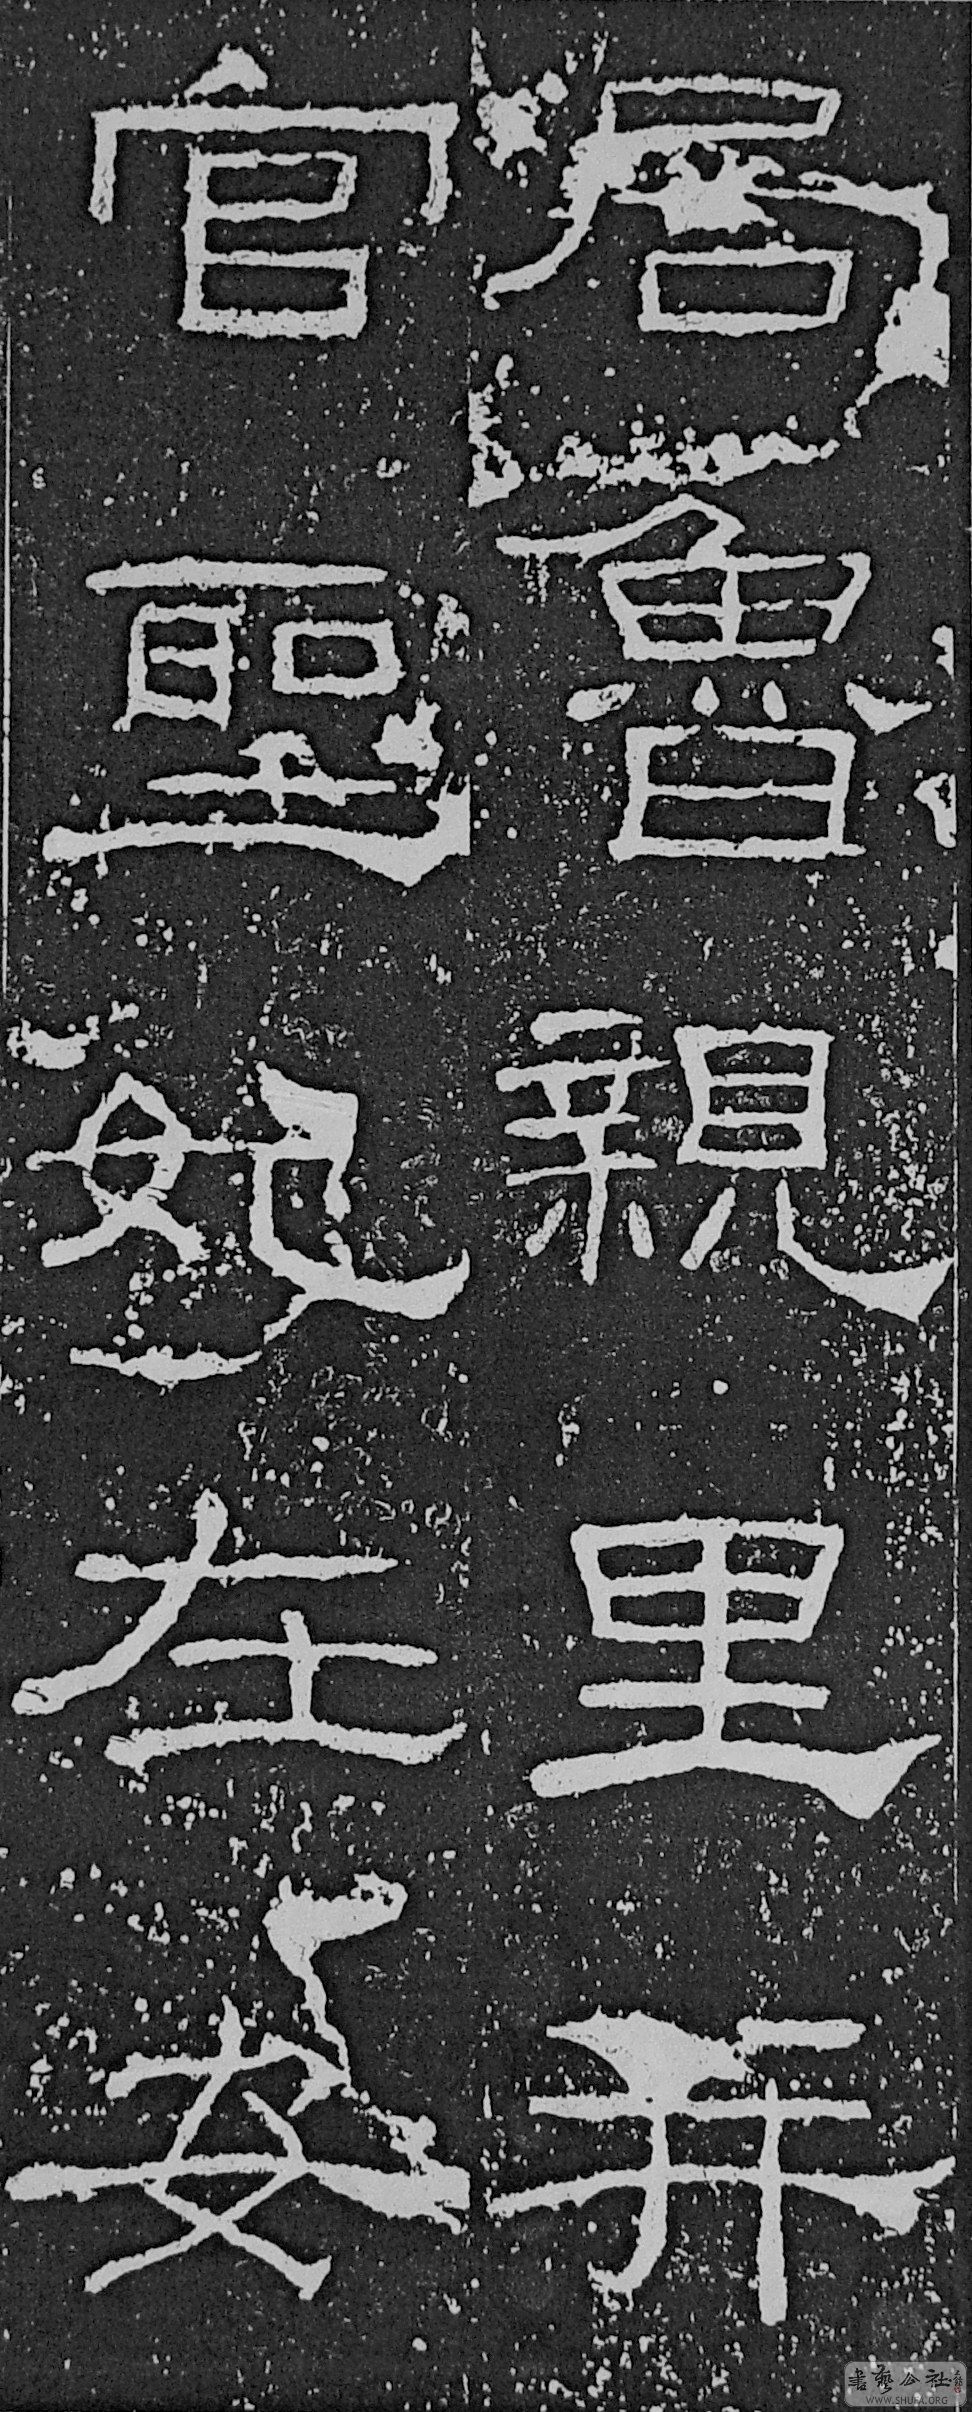 居魯親里并
官聖妃在安
書藝公社
WWW.SHUFA.ORG